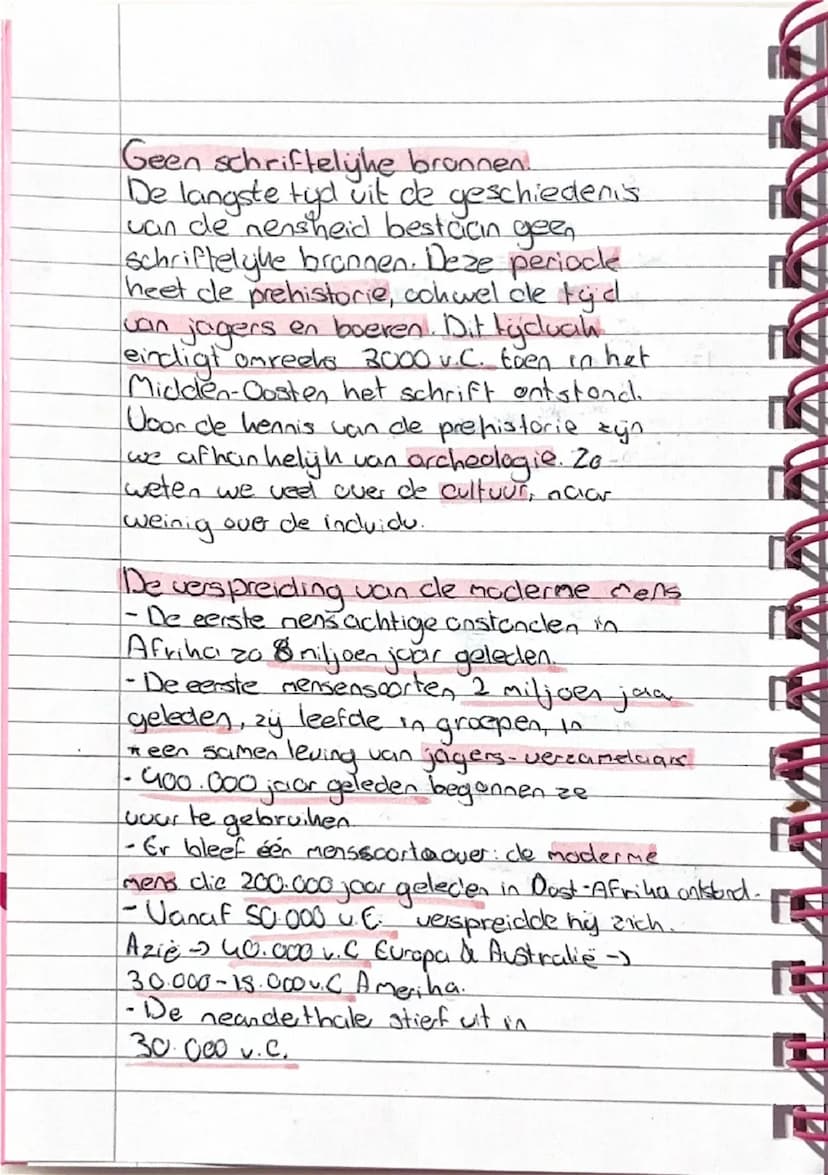 Geen schriftelijke bronnen.
De langste tijd uit de geschiedenis
van de mensheid bestaan geen
schriftelijke bronnen. Deze periode
heet de prehistorie, oohwel de tijd
van jagers en boeren. Dit tijdvak
eindigt omreeks 3000 v.C. toen in het
Midden-Oosten het schrift ontstond.
Voor de kennis van de prehistorie zijn
we afhankelijk van archeologie. Zo
weten we veel over de cultuur, maar
weinig over de individu.
De verspreiding van de moderne mens
- De eerste mensachtige onstonden in
Afrika zo 8 miljoen jaar geleden
- De eerste mensensoorten, 2 miljoen jaar
geleden, zij leefde in groepen, in
een samenleving van jagers-verzamelaars
- 400.000 jaar geleden begonnen ze
vuur te gebruiken
- Er bleef één menssoort over: de moderne
mens die 200.000 jaar geleden in Oost-Afrika ontstond.
- Vanaf 50.000 v.C. verspreidde hij zich.
Azië -> 40.000 v.C Europa & Australië ->
30.000-18.000 v.C Amerika.
- De neanderthale stierf uit in
30.000 v.C.